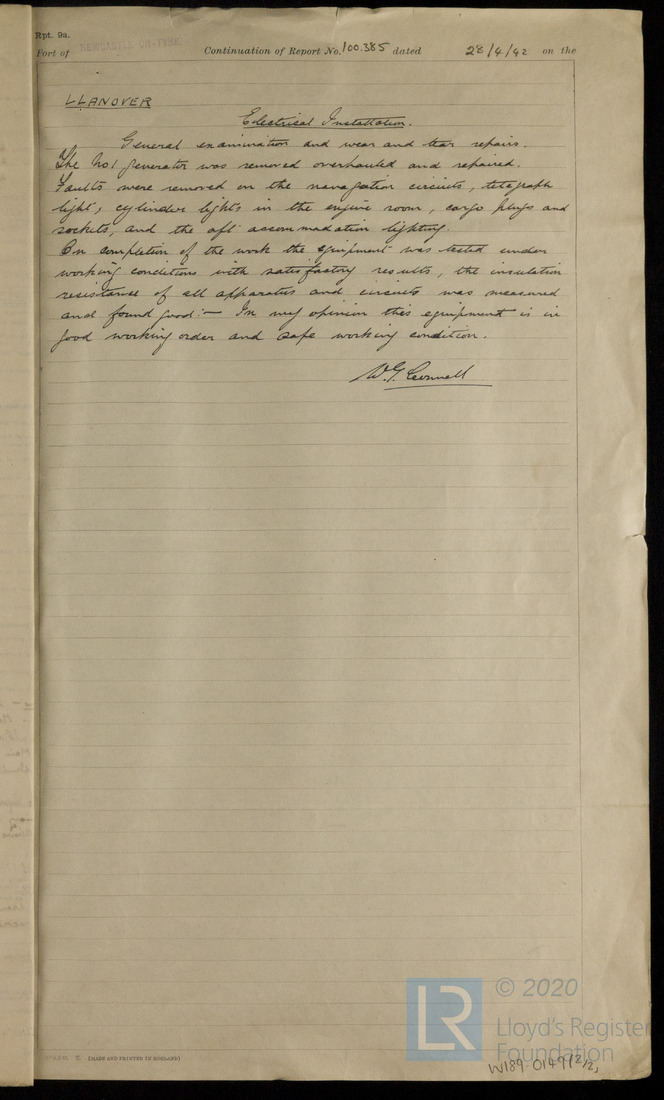 Rpt. 9a.
Port of NEWCASTLE ON-TYNE Continuation of Report No. 100.385 dated 28/4/42 on the
LLANOVER
Electrical Installation.
General examination and wear and tear repairs.
The No 1 generator was removed overhauled and repaired.
Faults were removed on the navigation circuits, telegraph
light, cylinder lights in the engine room, cargo plugs and
sockets, and the aft accommodation lighting.
On completion of the work the equipment was tested under
working conditions with satisfactory results, the insulation
resistance of all apparatus and circuits was measured
and found good:— In my opinion this equipment is in
good working order and safe working condition.
W.G. Connell
(MADE AND PRINTED IN ENGLAND)
LR © 2020
Lloyd's Register
Foundation
W189-0149(2/2)